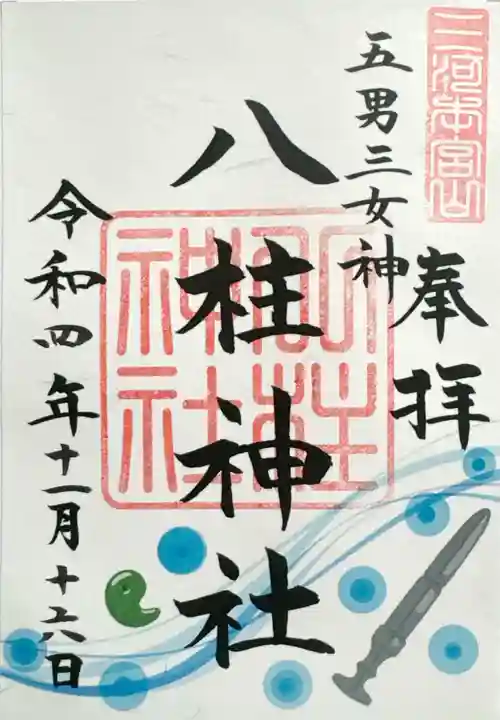 三河本宮山
奉拝
五男三女神
八柱神社
八柱神社
令和四年十一月十六日